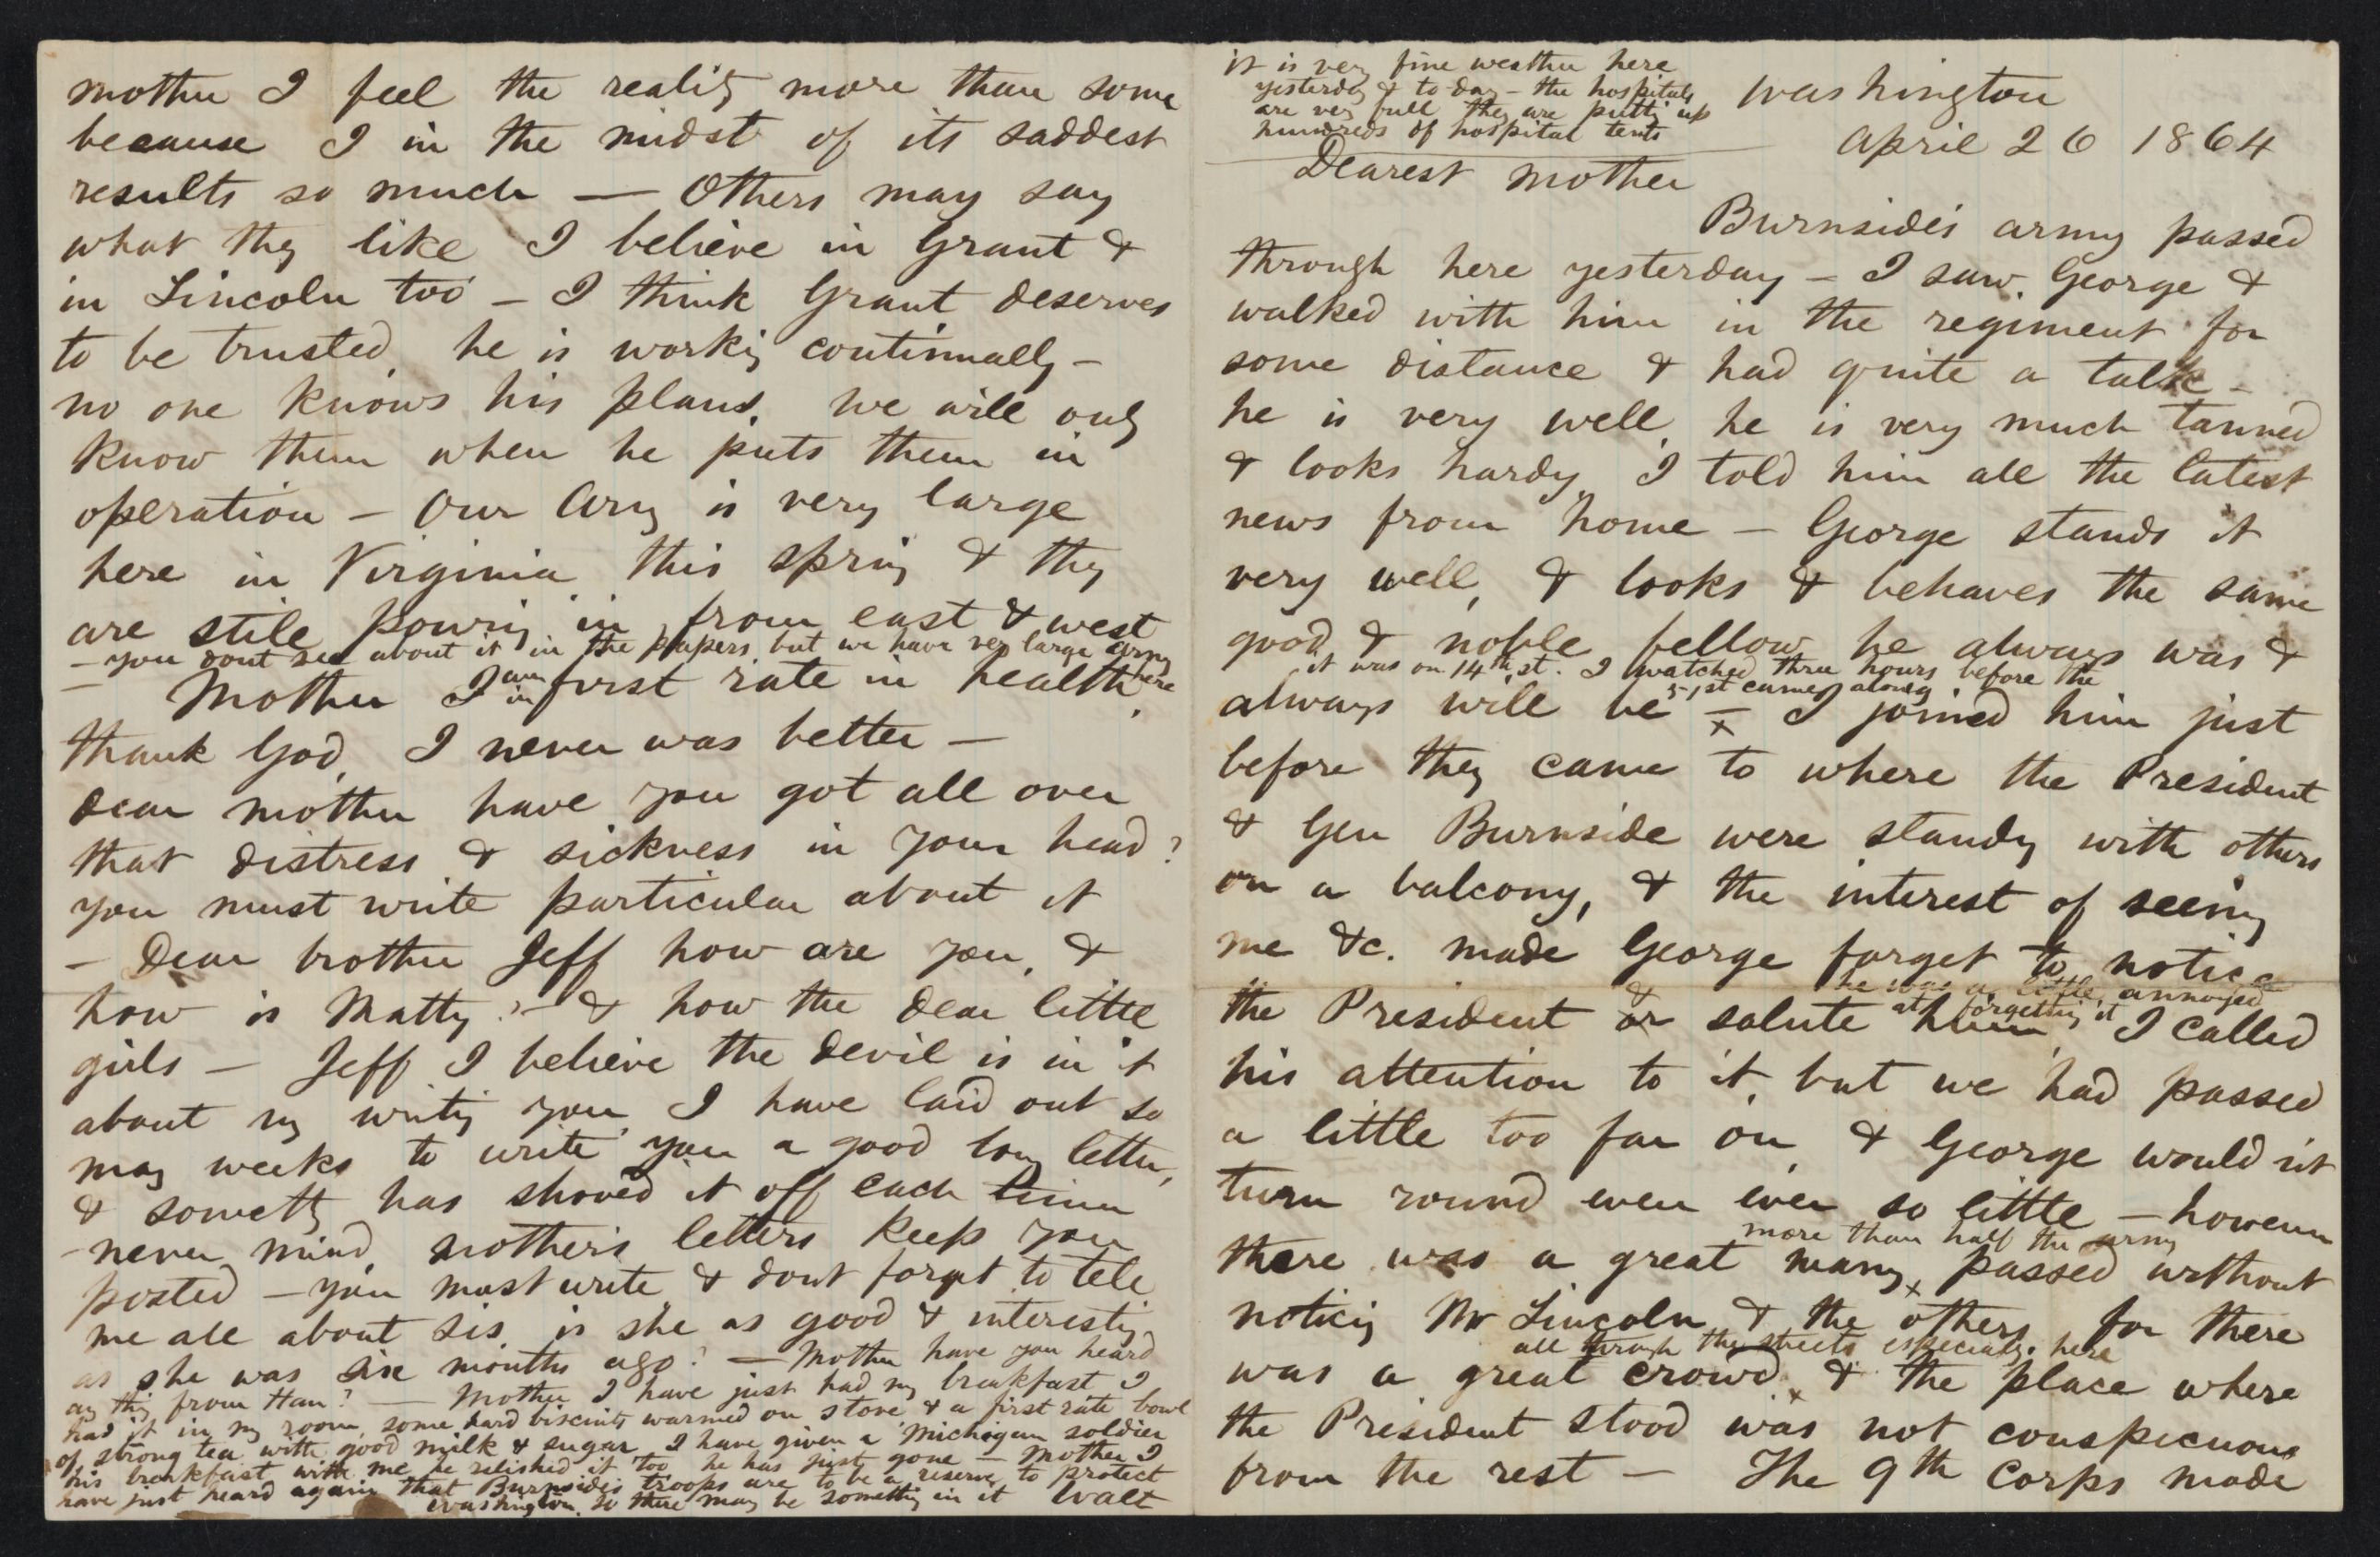 it is very fine weather here
yesterday & to-day - the hospitals
are very full they are putti up
hundreds of hospital tents
Washington
April 26 1864
Dearest mother
Burnside's army passed
through here yesterday - I saw George &
walked with him in the regiment for
some distance & had quite a talk -
he is very well, he is very much tanned
& looks hardy, I told him all the latest
news from home - George stands it
very well, & looks & behaves the same
good & noble fellow he always was &
it was on 14th st. I watched three hours before the
51st came along
always will be - x I joined him just
before they came to where the President
& Gen Burnside were standg with others
on a balcony, & the interest of seeing
me &c. made George forget to notice
he was a little annoyed
at forgetting it
the President & or salute him, I called
his attention to it, but we had passed
a little too far on, & George would n't
turn round even ever so little - however
more than half the army
there was a great many, x passed without
noticing Mr Lincoln & the others for there
all through the streets especially here
was a great crowd x & the place where
the President stood was not conspicuous
from the rest - The 9th Corps made
mother I feel the reality more than some
because I in the midst of its saddest
results so much - Others may say
what they like I believe in Grant &
in Lincoln too - I think Grant deserves
to be trusted, he is working continually -
no one knows his plans, we will only
know them when he puts them in
operation - Our army is very large
here in Virginia this spring & they
are still pouring in from east & west
- you dont see about it in the papers but we have very large army
here
- Mother I am in first rate in health,
thank God, I never was better -
dear mother have you got all over
that distress & sickness in your head?
you must write particular about it
- Dear brother Jeff how are you, &
how is Matty? - & how the dear little
girls - Jeff I believe the devil is in it
about my writing you, I have laid out so
many weeks to write you a good long letter,
& something has shoved it off each time
- never mind, mother's letters keep you
posted - you must write & dont forget to tell
me all about sis, is she as good & interesting
as she was six months ago? - Mother have you heard
any thing from Han? - Mother I have just had my breakfast I
had it in my room, some hard biscuits warmed on stove & a first rate bowl
of strong tea with good milk & sugar I have given a Michigan soldier
his breakfast with me he relished it too he has just gone - Mother I
have just heard again that Burnside's troops are to be a reserve to protect
Washington, so there may be something in it Walt